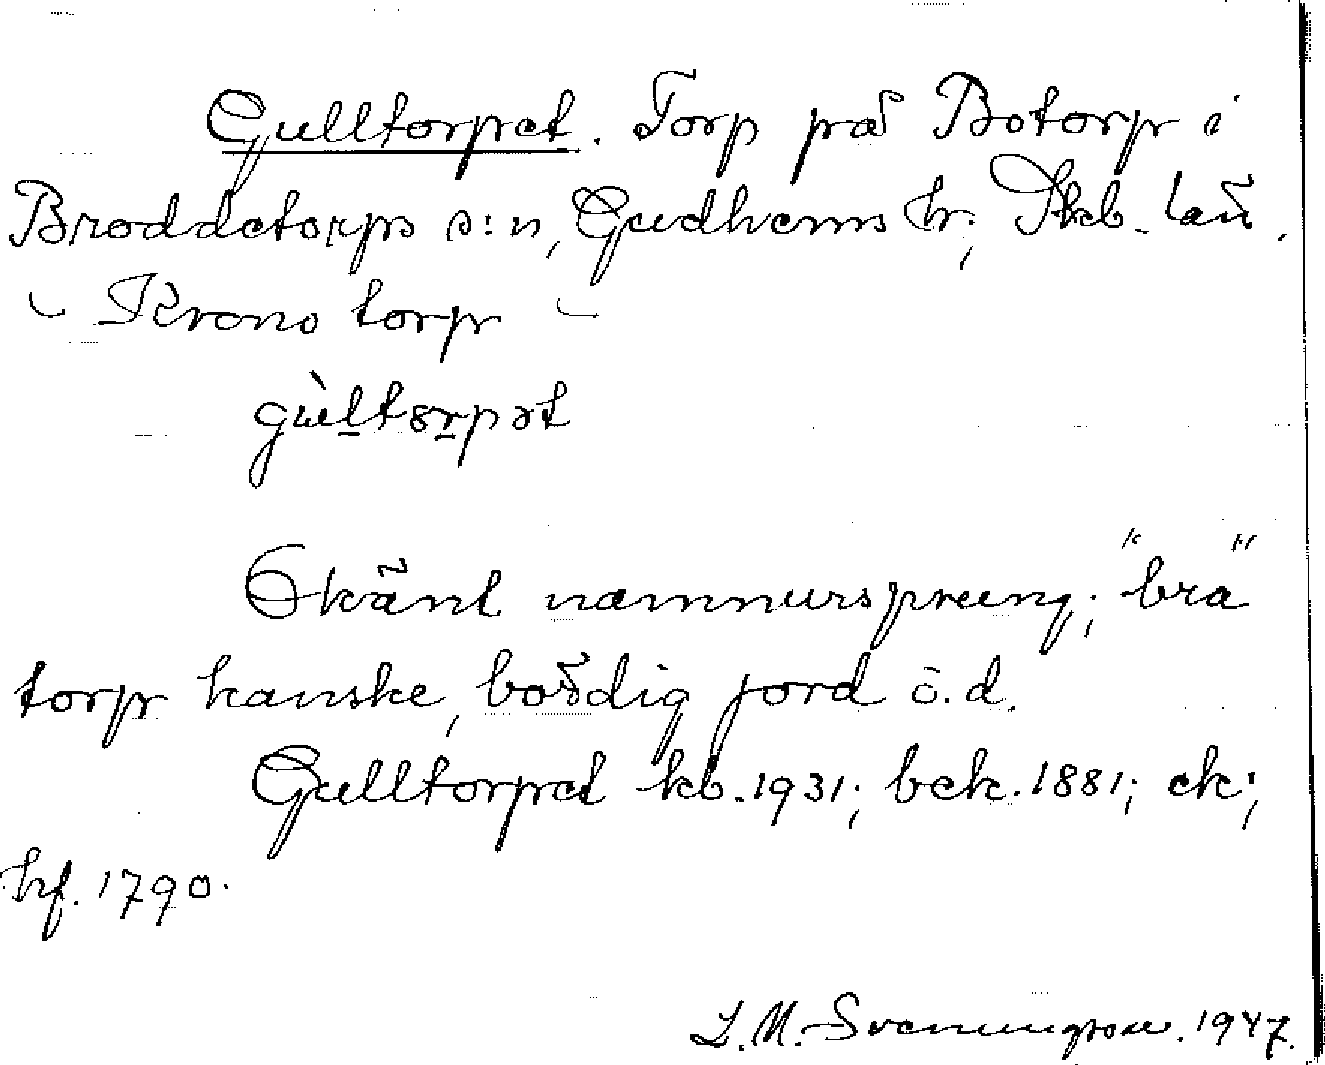 Gulltorpet. Torp på Botorp i
Broddetorps s:n, Gudhems hr; Skb. län.
Krono torp
gùltorpət
Okänt namnursprung; "bra"
torp kanske, bördig jord o.d.
Gulltorpet kb. 1931; bek. 1881; ek;
hf. 1790.
S. M. Svenungsson. 1947.